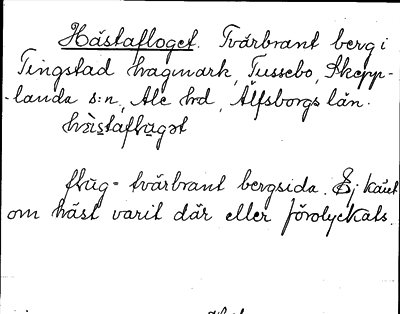 Hästafloget. Tvärbrant berg i
Tingstad hagmark, Tussebo, Skepp-
-landa s:n, Ale hrd, Älfsborgs län.
hästaflugət
flug- tvärbrant bergsida. Ej känt
om häst varit där eller förolyckats.